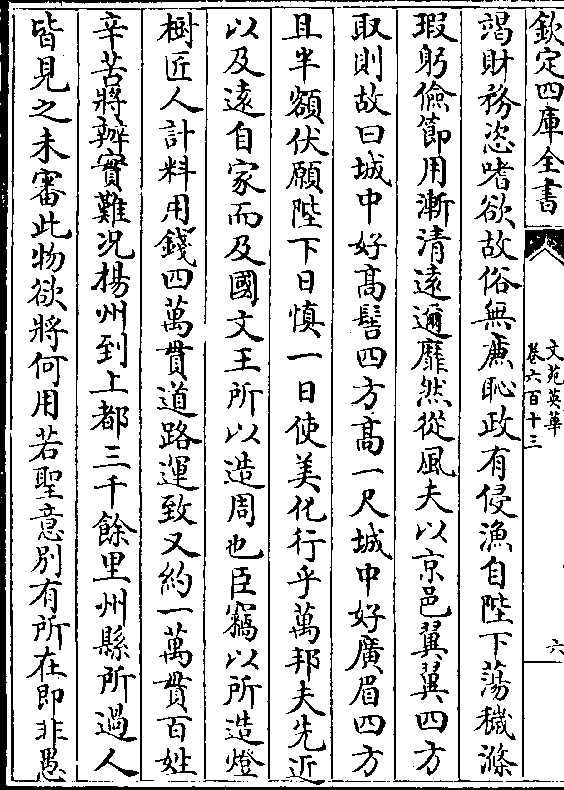 欽定四庫全書
文苑英華
卷六百十三
六
竭財務恣嗜欲故俗無㢘恥政有侵漁自陛下蕩穢滌
瑕躬儉節用漸清遠邇靡然從風夫以京邑翼翼四方
取則故曰城中好髙髻四方髙一尺城中好廣眉四方
且半額伏願陛下日慎一日使美化行乎萬邦夫先近
以及遠自家而及國文王所以造周也臣竊以所造燈
樹匠人計料用錢四萬貫道路運致又約一萬貫百姓
辛苦將辦實難况楊州到上都三千餘里州縣所過人
皆見之未審此物欲將何用若聖意别有所在即非愚